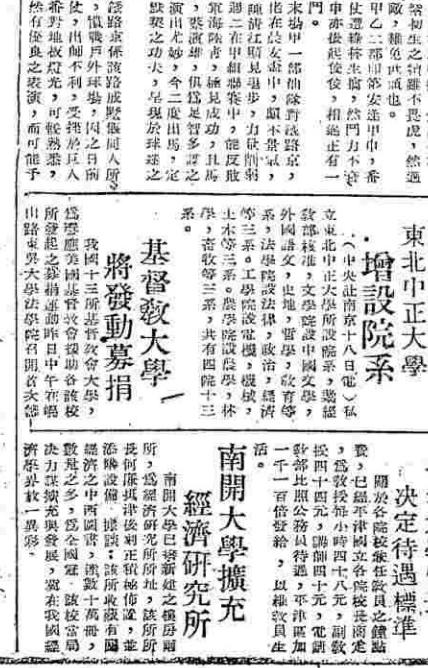 初生之犢雖不畏虎，然遇
末場甲一部仙隊對鐵路京，
在長安盃中，頗不景氣，
陳清江顯見退步，力量削弱
二在甲組聯賽中，能反敗
海陸者，極見成功，且馬
俱為足智多謀之
演出尤妙，今二度出馬，定
默契之功夫，呈現於球迷之
慣戰戶外球場，因之日前
出師不利，受挫於巨人
對地板燈光，可較熟悉，
有優良之表演，而可能予
東北中正大學
增設院系
（中央社南京十八日電）私
立東北中正大學所設院系，業經
教部核准，文學院設中國文學，
外國語文，史地，哲學，教育等
系，法學院設法律，政治，經濟
等三系。工學院設電機，機械，
土木等三系。農學院設農學，林
學，畜牧等三系，共有四院十三
系。
基督教大學
將發動募捐
我國十三所基督教會大學，
為響應美國基督教會援助各該校
所發起之募捐運動昨日中午在崐
山路東吳大學法學院召開首次籌
決定待遇標準
關於各院校兼任教員之鐘點
費，已經平津國立各院校長商定
，為教授每小時四十八元，副教
授四十四元，講師四十元，電請
教部比照公務員待遇，平津區加
一千一百倍發給，以維教員生
活。
南開大學擴充
經濟研究所
南開大學已將新建之樓房兩
所，為經濟研究所所址，該所所
長何廉抵津後刻正積極佈置，並
添購設備。據談：該所收藏有關
經濟之中西圖書，達數十萬冊，
數量之多，為全國冠。該校當局
決力謀擴充與發展，冀在我國經
濟學界放一異彩。